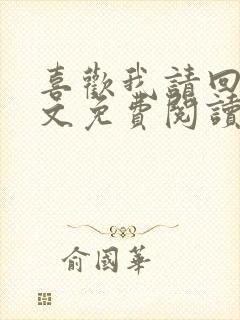 喜歡我請回
文免費閱讀
俞國華